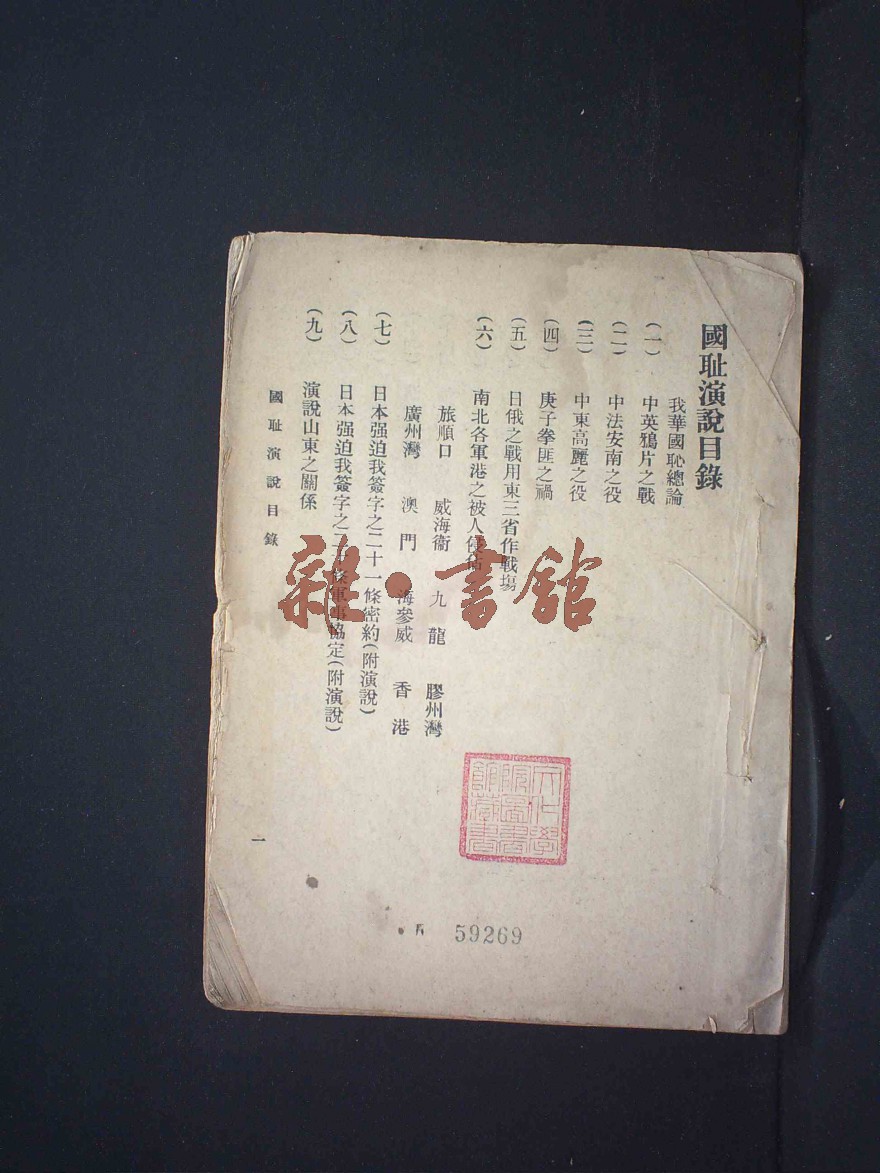 國耻演說目錄
我華國恥總論
(一) 中英鴉片之戰
(二) 中法安南之役
(三) 中東高麗之役
(四) 庚子拳匪之禍
(五) 日俄之戰用東三省作戰塲
(六) 南北各軍港之被人侵佔
旅順口 威海衞 九龍 膠州灣
廣州灣 澳門 海參威 香港
(七) 日本强迫我簽字之二十一條密約(附演說)
(八) 日本强迫我簽字之二十條軍事協定(附演說)
(九) 演說山東之關係
國耻演說目錄
一
雜·書館
文化學院圖書館藏書
59269